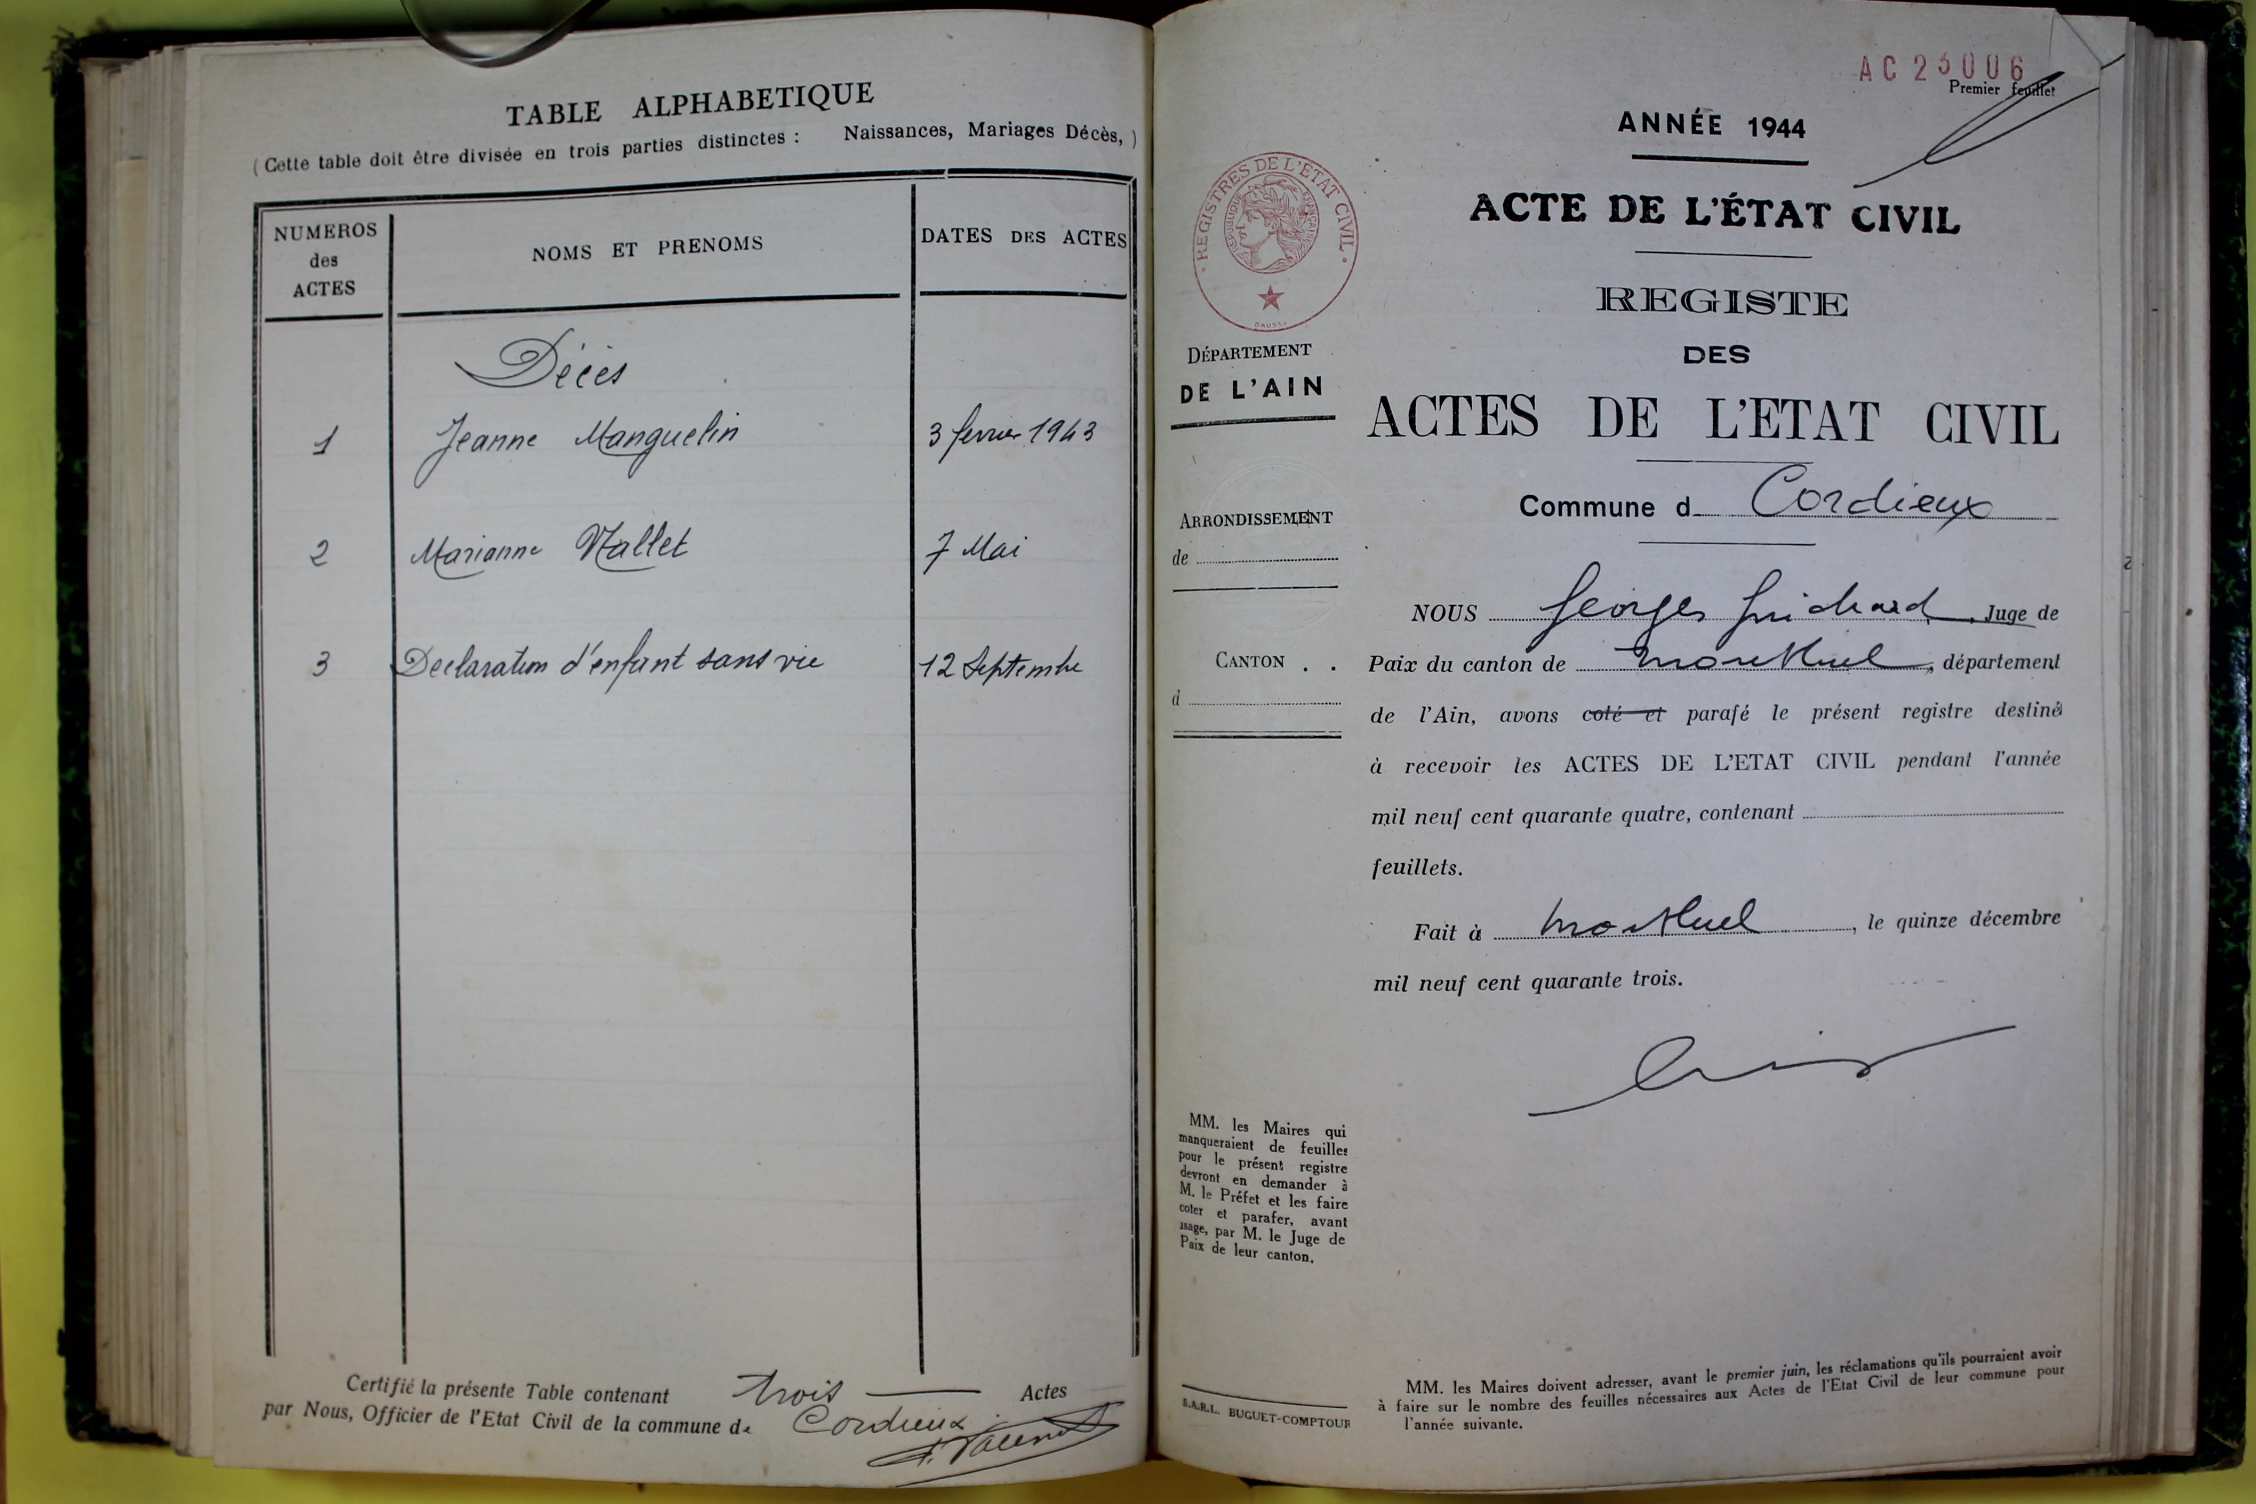 TABLE ALPHABETIQUE
( Cette table doit être divisée en trois parties distinctes : Naissances, Mariages Décès, )
NUMEROS
des
ACTES
NOMS ET PRENOMS
DATES DES ACTES
Décès
1 Jeanne Manguelin 3 fevrier 1943
2 Marianne Vallet 7 Mai
3 Declaration d'enfant sans vie 12 Septembre
Certifié la présente Table contenant trois Actes
par Nous, Officier de l'Etat Civil de la commune de Cordieux
AC 23006
Premier feuillet
ANNÉE 1944
ACTE DE L'ÉTAT CIVIL
REGISTRES DE L'ETAT CIVIL
REPUBLIQUE FRANÇAISE
REGISTE
DES
ACTES DE L'ETAT CIVIL
DÉPARTEMENT
DE L'AIN
Commune d Cordieux
ARRONDISSEMENT
de
CANTON . .
d
NOUS Georges Guichard, Juge de
Paix du canton de Montluel, département
de l'Ain, avons coté et parafé le présent registre destiné
à recevoir les ACTES DE L'ETAT CIVIL pendant l'année
mil neuf cent quarante quatre, contenant
feuillets.
Fait à Montluel, le quinze décembre
mil neuf cent quarante trois.
MM. les Maires qui
manqueraient de feuilles
pour le présent registre
devront en demander à
M. le Préfet et les faire
coter et parafer, avant
usage, par M. le Juge de
Paix de leur canton.
S.A.R.L. BUGUET-COMPTOUR
MM. les Maires doivent adresser, avant le premier juin, les réclamations qu'ils pourraient avoir
à faire sur le nombre des feuilles nécessaires aux Actes de l'Etat Civil de leur commune pour
l'année suivante.